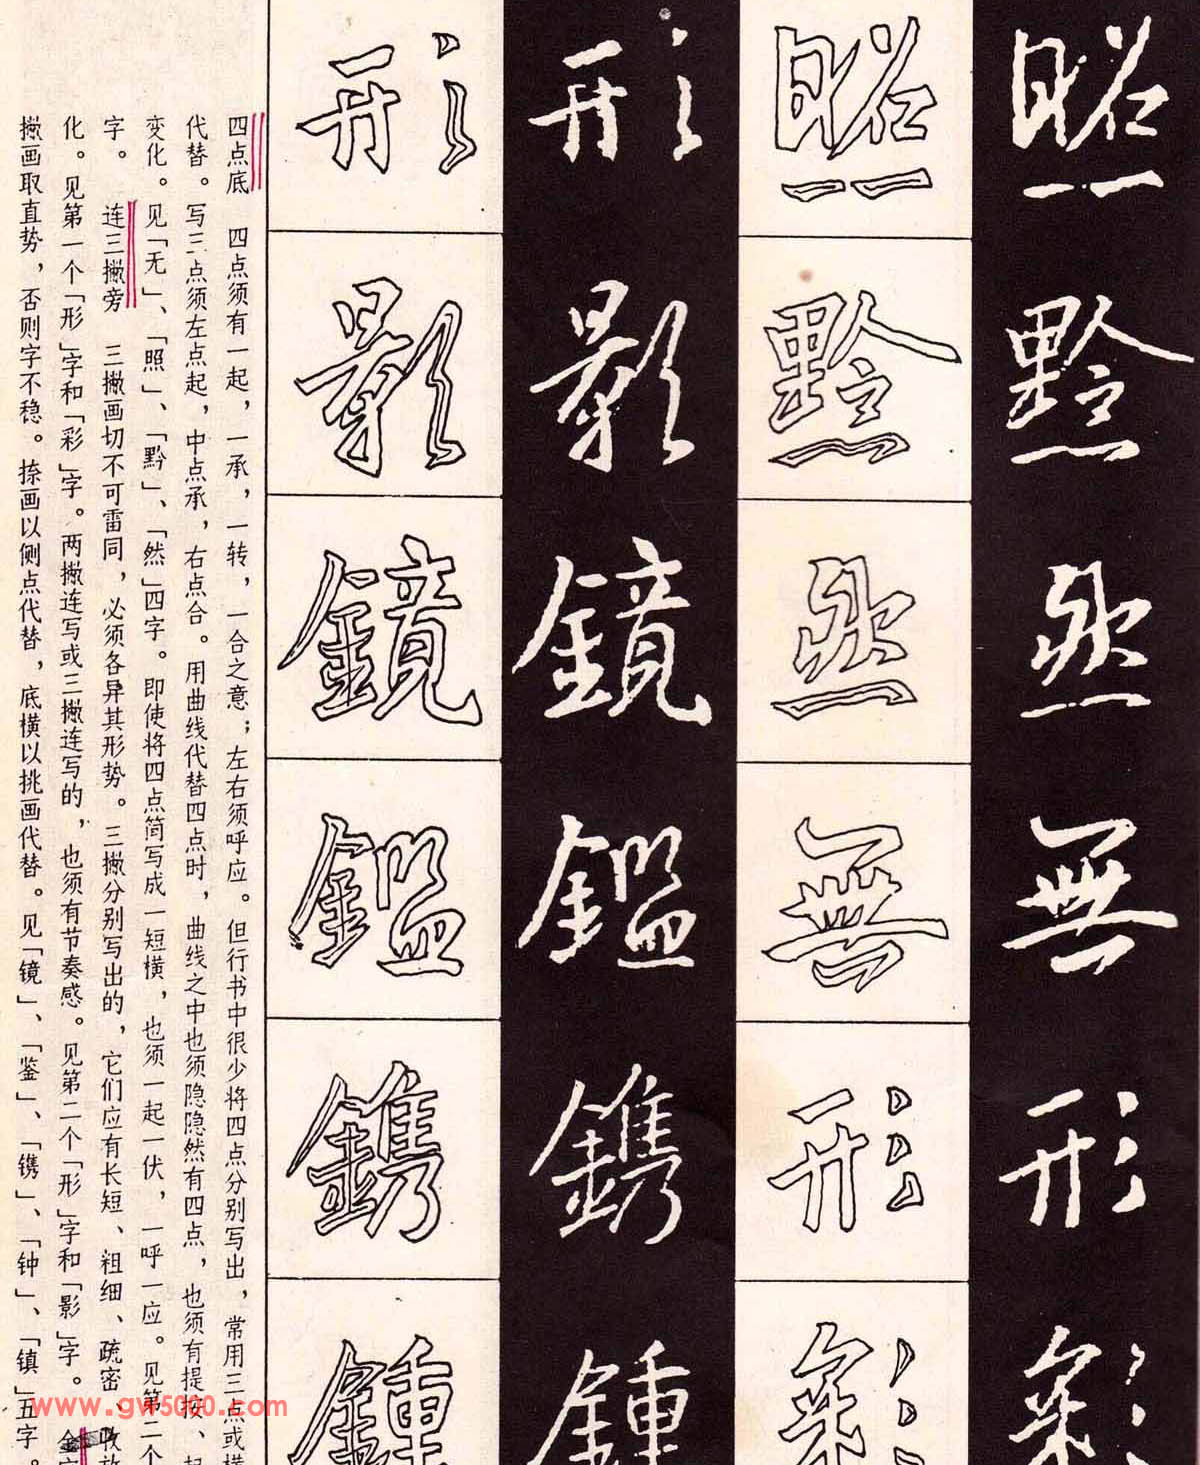 照黔然無形彩
照黔然無形彩
形影鏡鑑鐫鍾
形影鏡鑑鐫鍾
四点底　四点须有一起，一承，一转，一合之意；左右须呼应。但行书中很少将四点分别写出，常用三点或横
代替。写三点须左点起，中点承，右点合。用曲线代替四点时，曲线之中也须隐隐然有四点，也须有提按、起
变化。见「无」、「照」、「黔」、「然」四字。即使将四点简写成一短横，也须一起一伏，一呼一应。见第二个
字。　连三撇旁　三撇画切不可雷同，必须各异其形势。三撇分别写出的，它们应有长短、粗细、疏密、收放
化。见第一个「形」字和「彩」字。两撇连写或三撇连写的，也须有节奏感。见第二个「形」字和「影」字。
撇画取直势，否则字不稳。捺画以侧点代替，底横以挑画代替。见「镜」、「鉴」、「镌」、「钟」、「镇」五字。
www.gw5000.com